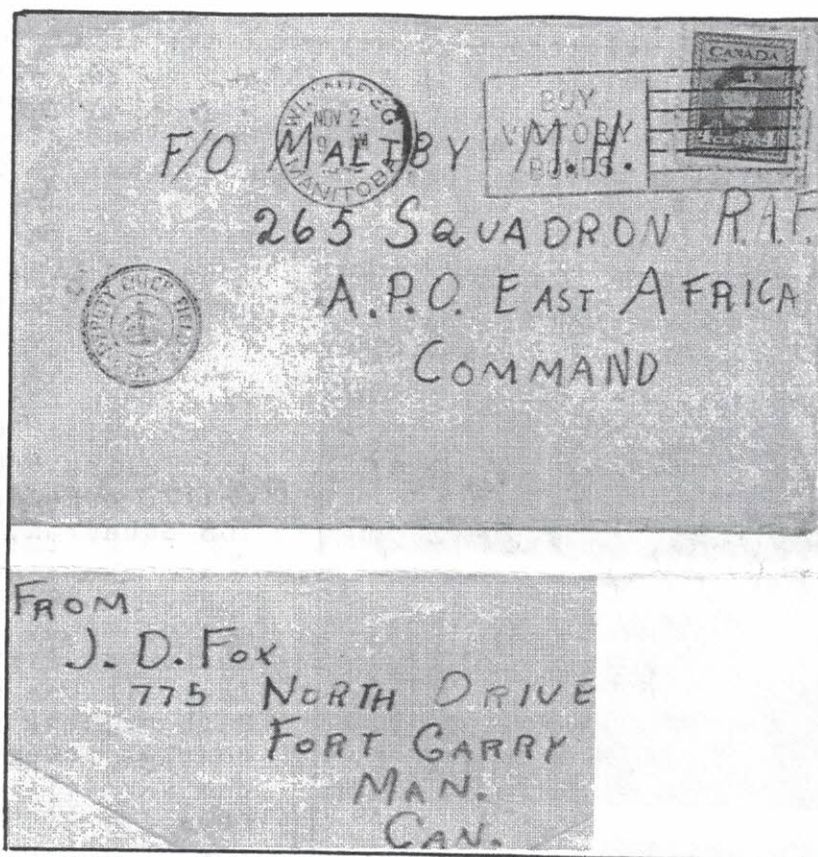 CANADA
WINNIPEG
NOV 2
MANITOBA
BUY
VICTORY
BONDS
F/O MALTBY M.H.
265 SQUADRON R.A.F.
A.P.O. EAST AFRICA
COMMAND
FROM
J. D. FOX
775 NORTH DRIVE
FORT GARRY
MAN.
CAN.